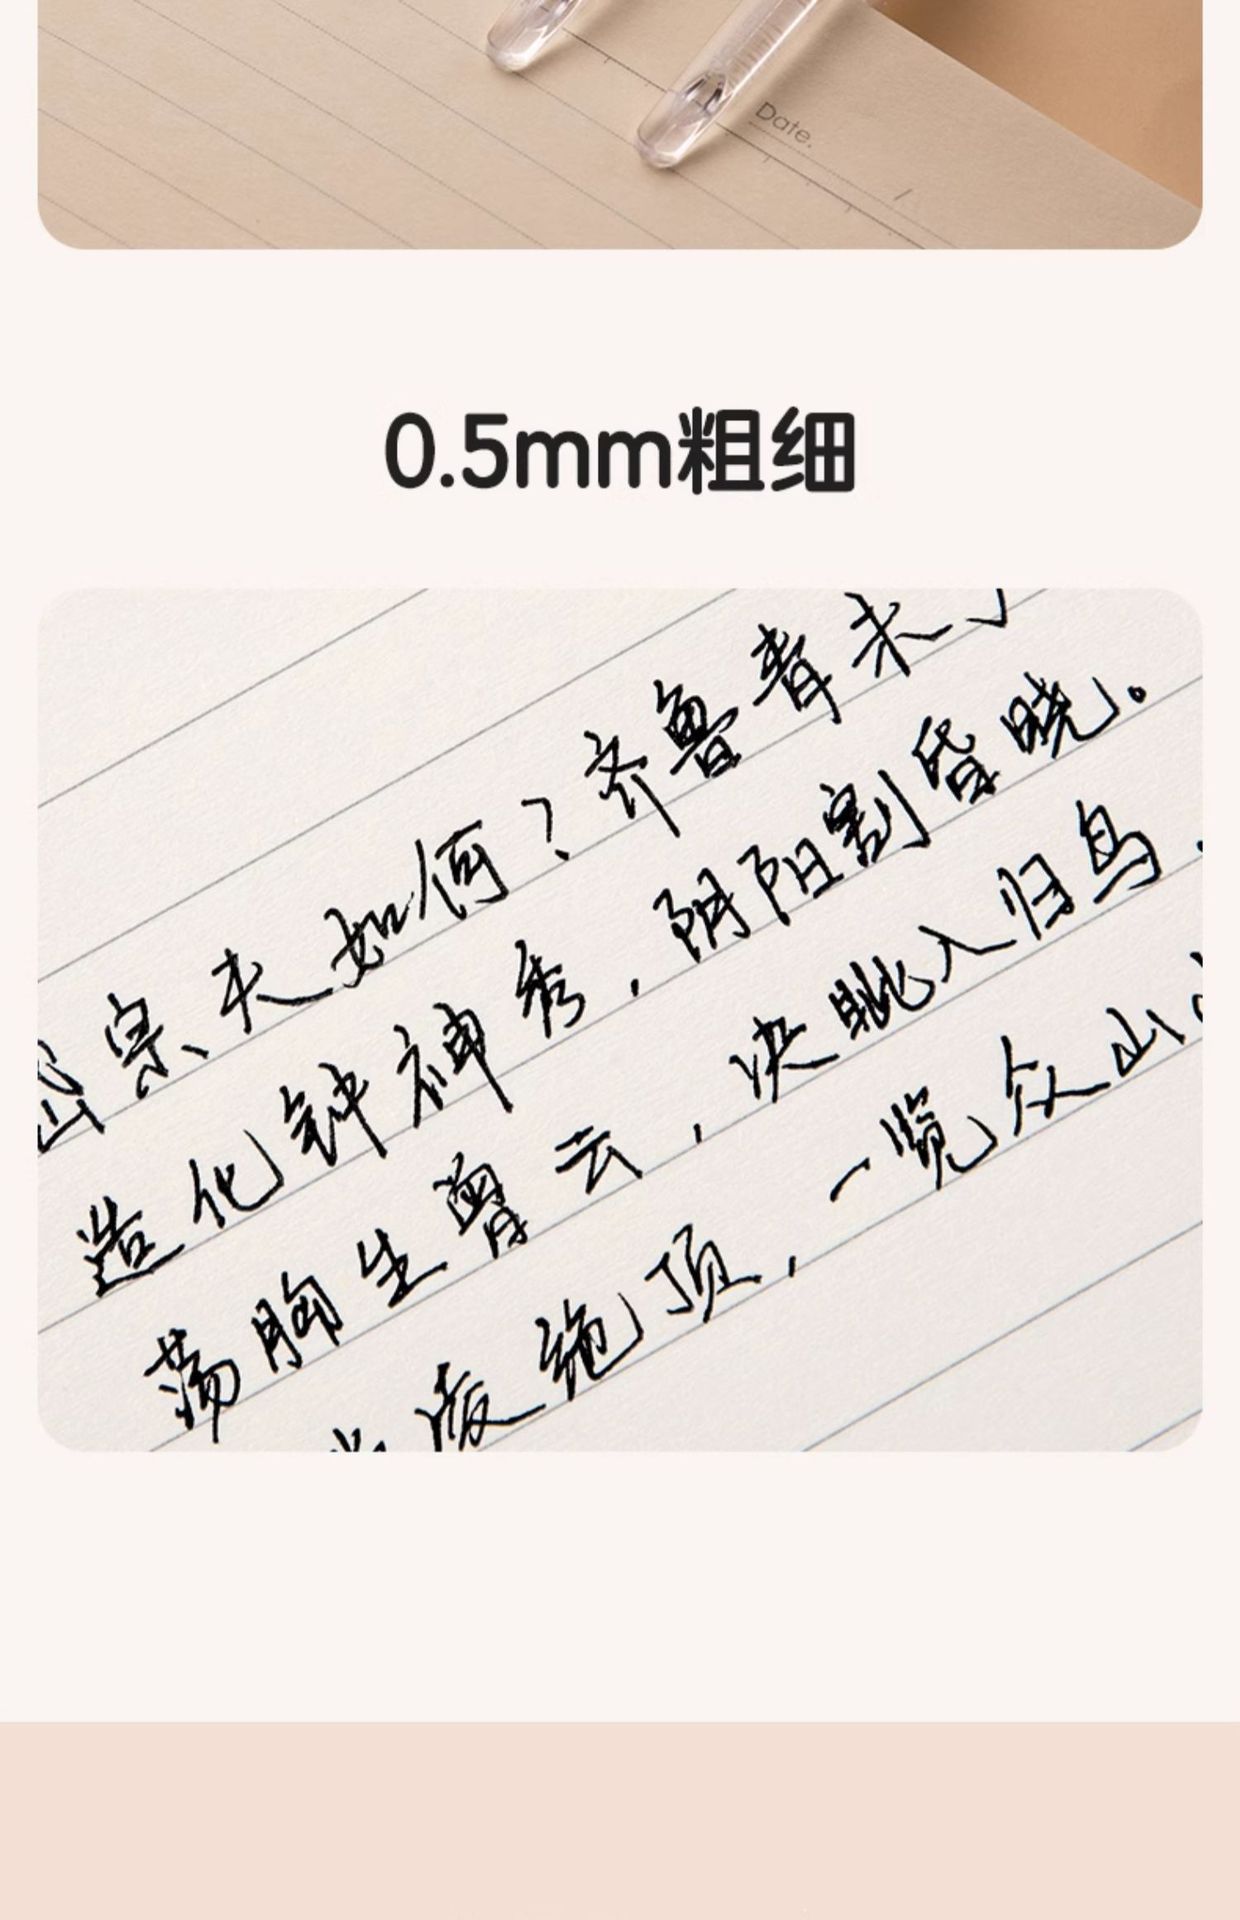 Date.
0.5mm粗细
岱宗夫如何？齐鲁青未了
造化钟神秀，阴阳割昏晓。
荡胸生曾云，决眦入归鸟，
当凌绝顶，一览众山小